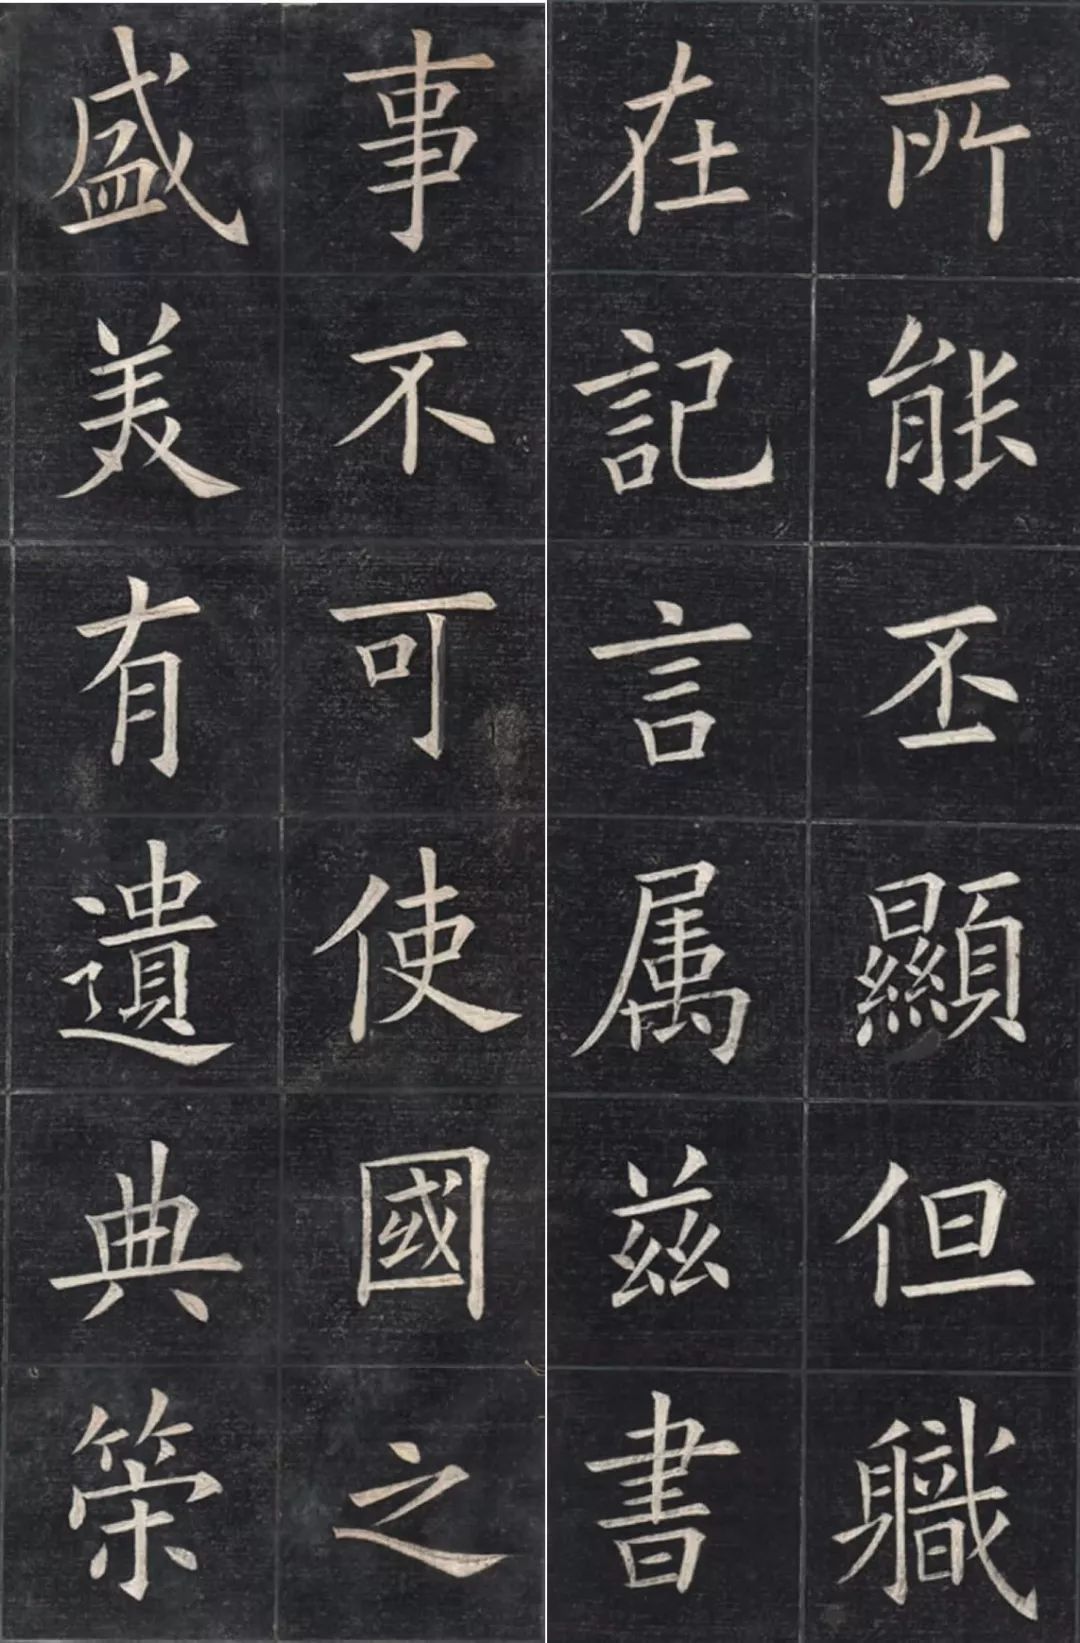 所能丕顯但職
在記言属茲書
事不可使國之
盛美有遺典策